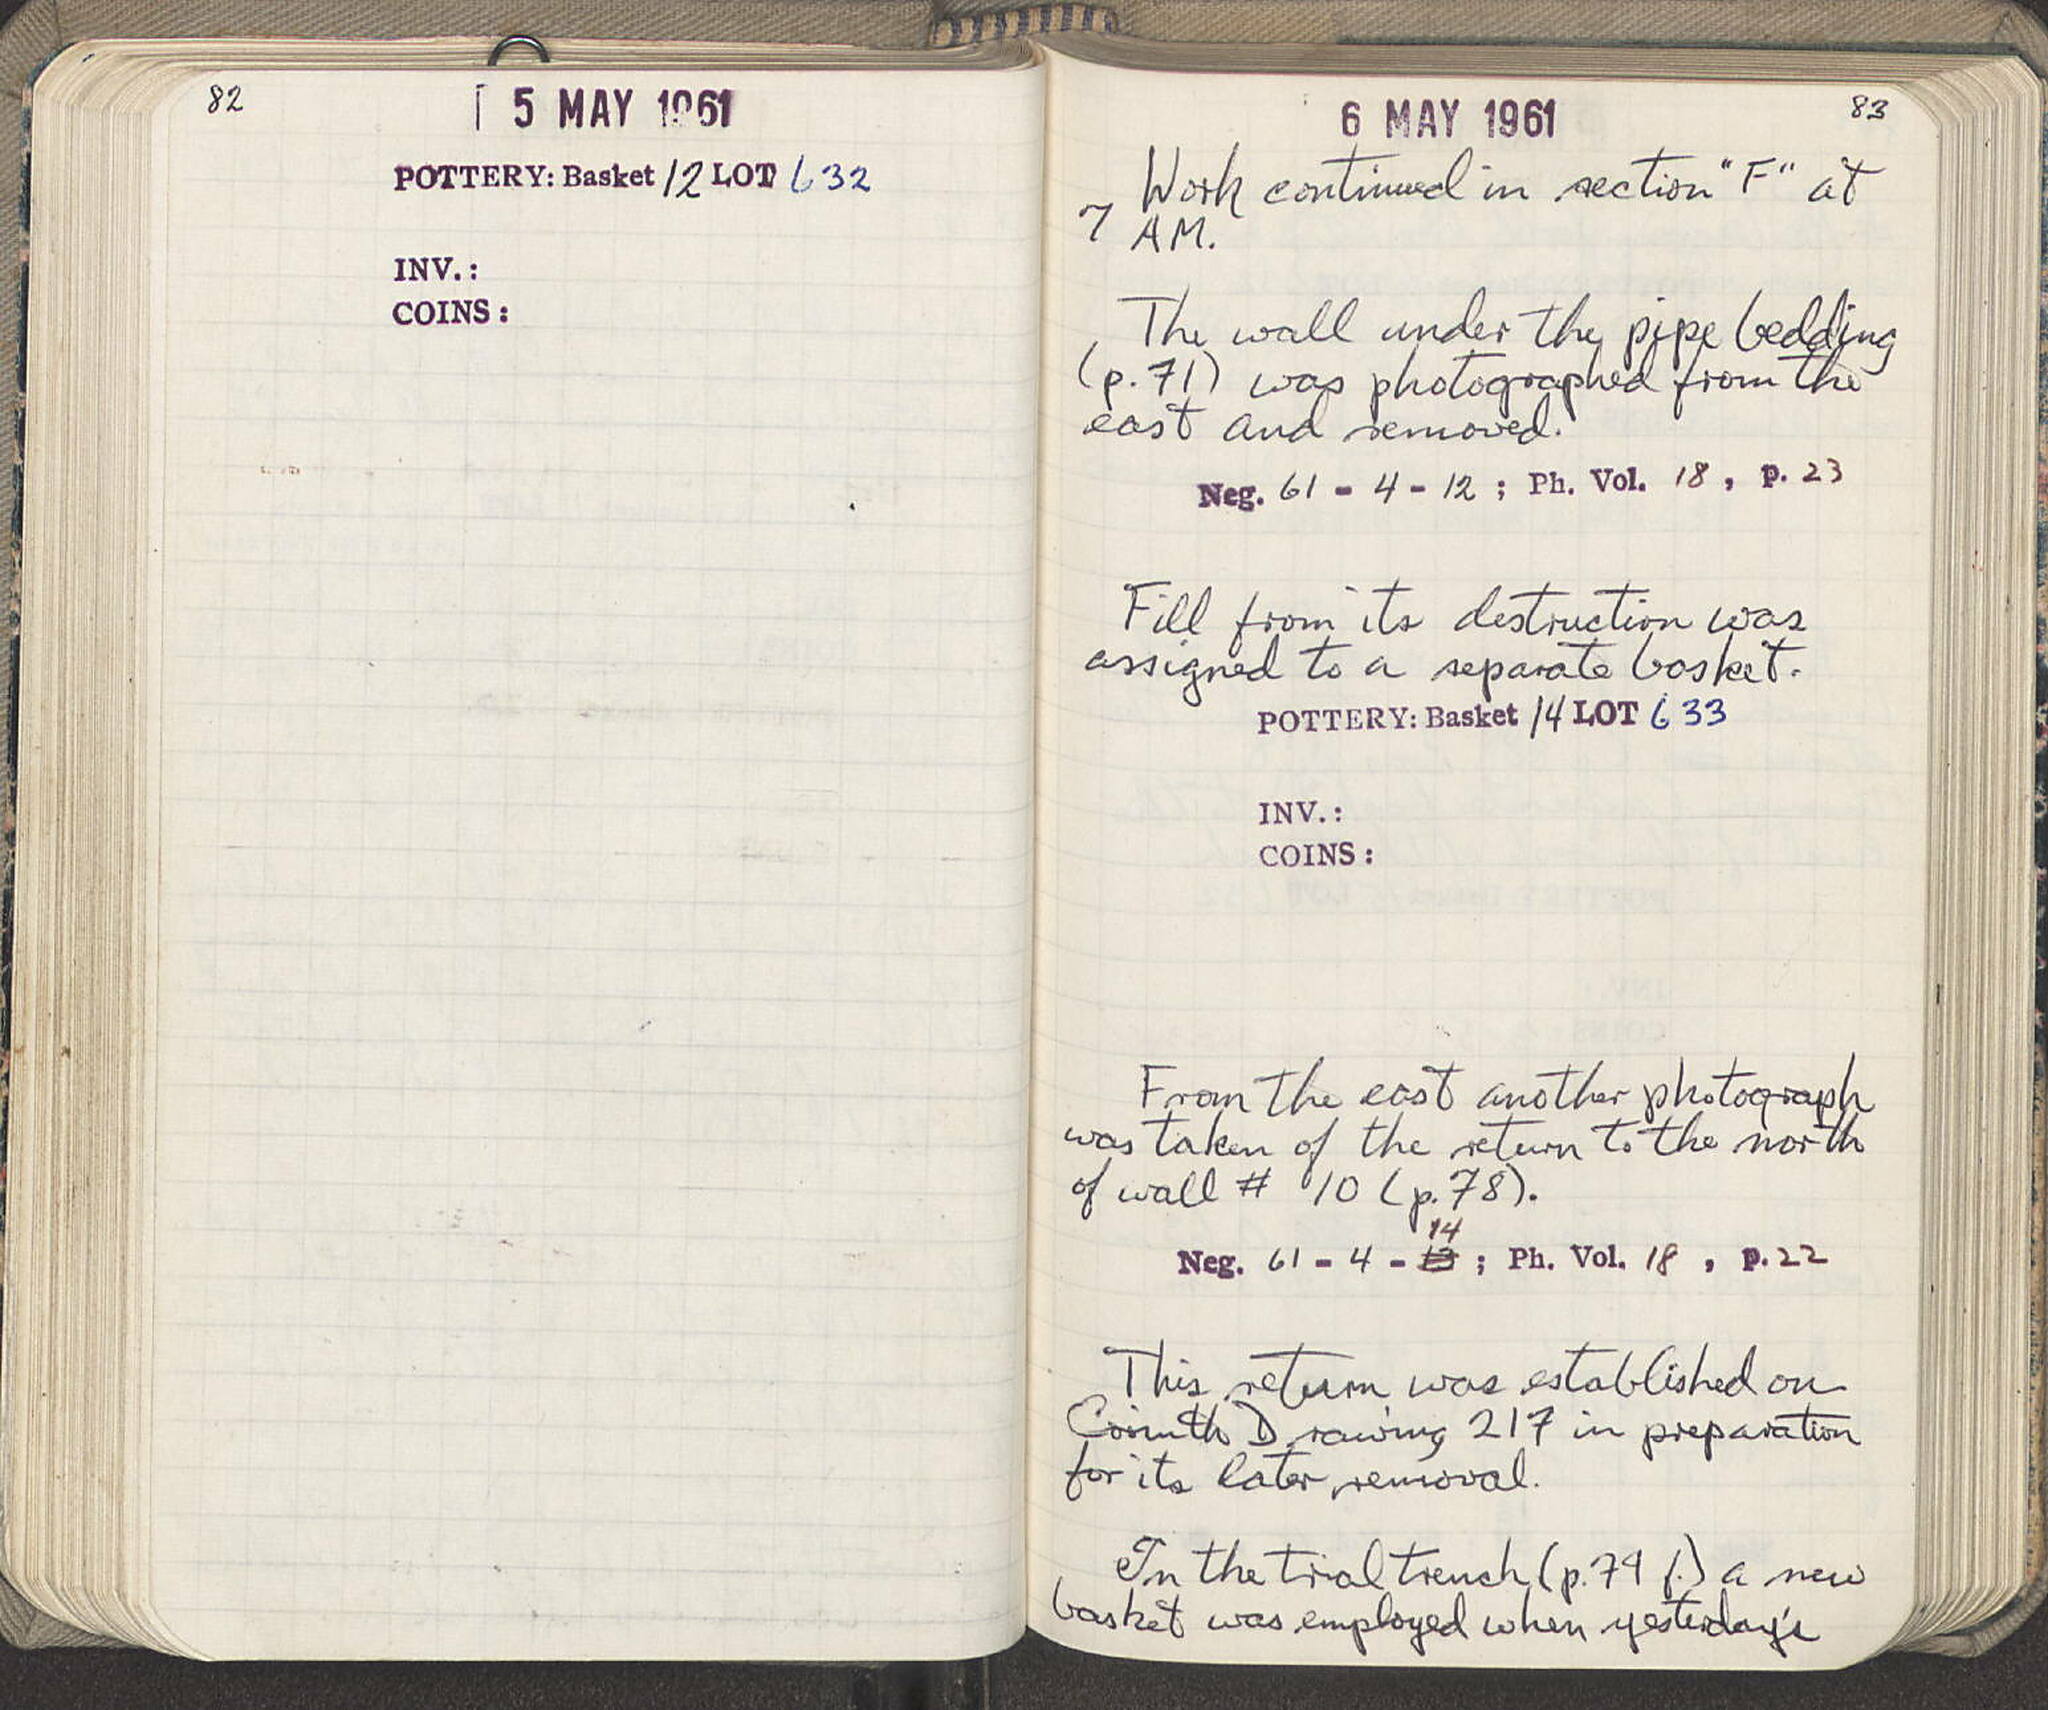 82
5 MAY 1961
POTTERY: Basket 12 LOT 632
INV.:
COINS:
83
6 MAY 1961
Work continued in section "F" at
7 AM.
The wall under the pipe bedding
(p.71) was photographed from the
east and removed.
Neg. 61 - 4 - 12 ; Ph. Vol. 18 , p. 23
Fill from its destruction was
assigned to a separate basket.
POTTERY: Basket 14 LOT 633
INV.:
COINS:
From the east another photograph
was taken of the return to the north
of wall # 10 (p.78).
14
Neg. 61 - 4 - 13 ; Ph. Vol. 18 , p. 22
This return was established on
Corinth Drawing 217 in preparation
for its later removal.
In the trial trench (p.79 f.) a new
basket was employed when yesterday's